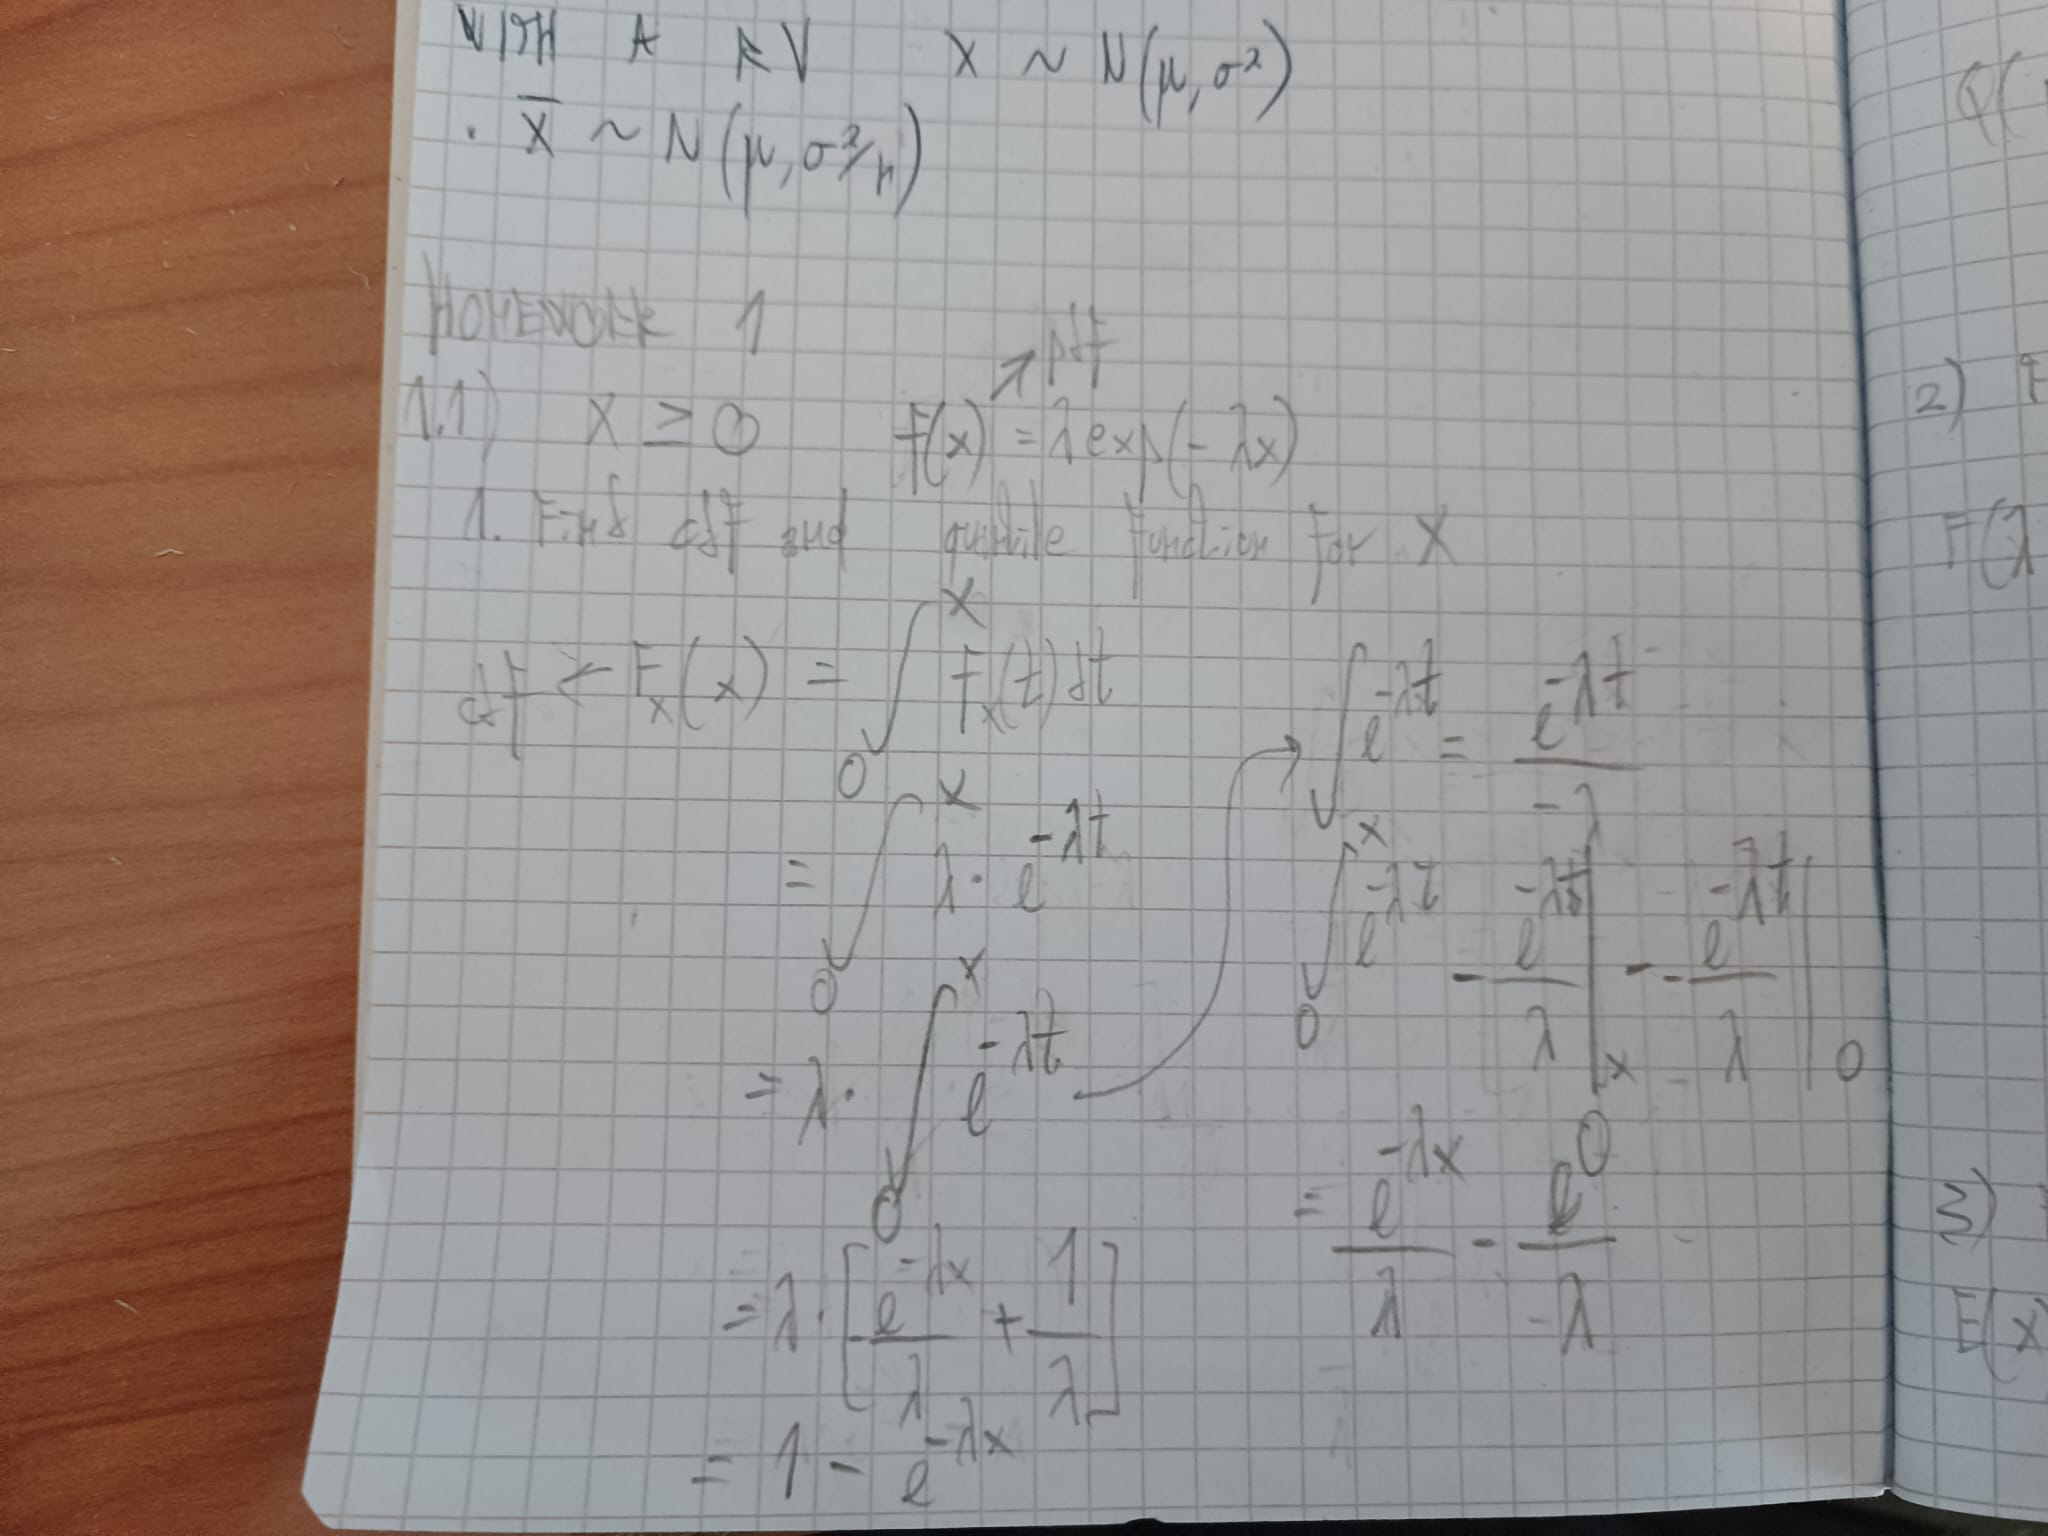 WITH A RV X ~ N(μ, σ²)
· X̄ ~ N(μ, σ²/n)
HOMEWORK 1
→ pdf
1.1) X ≥ 0 f(x) = λ exp(-λx)
1. Find cdf and quantile function for X
cdf ← F_X(x) = ∫_0^x f_X(t) dt
= ∫_0^x λ · e^{-λt}
= λ · ∫_0^x e^{-λt}
= λ · [-e^{-λx}/λ + 1/λ]
= 1 - e^{-λx}
→ ∫ e^{-λt} = e^{-λt}/-λ
∫_0^x e^{-λt} -e^{-λt}/λ |_x - -e^{-λt}/λ |_0
= e^{-λx}/λ - e^0/-λ
Q(
2) F
F(λ
3)
E(x)